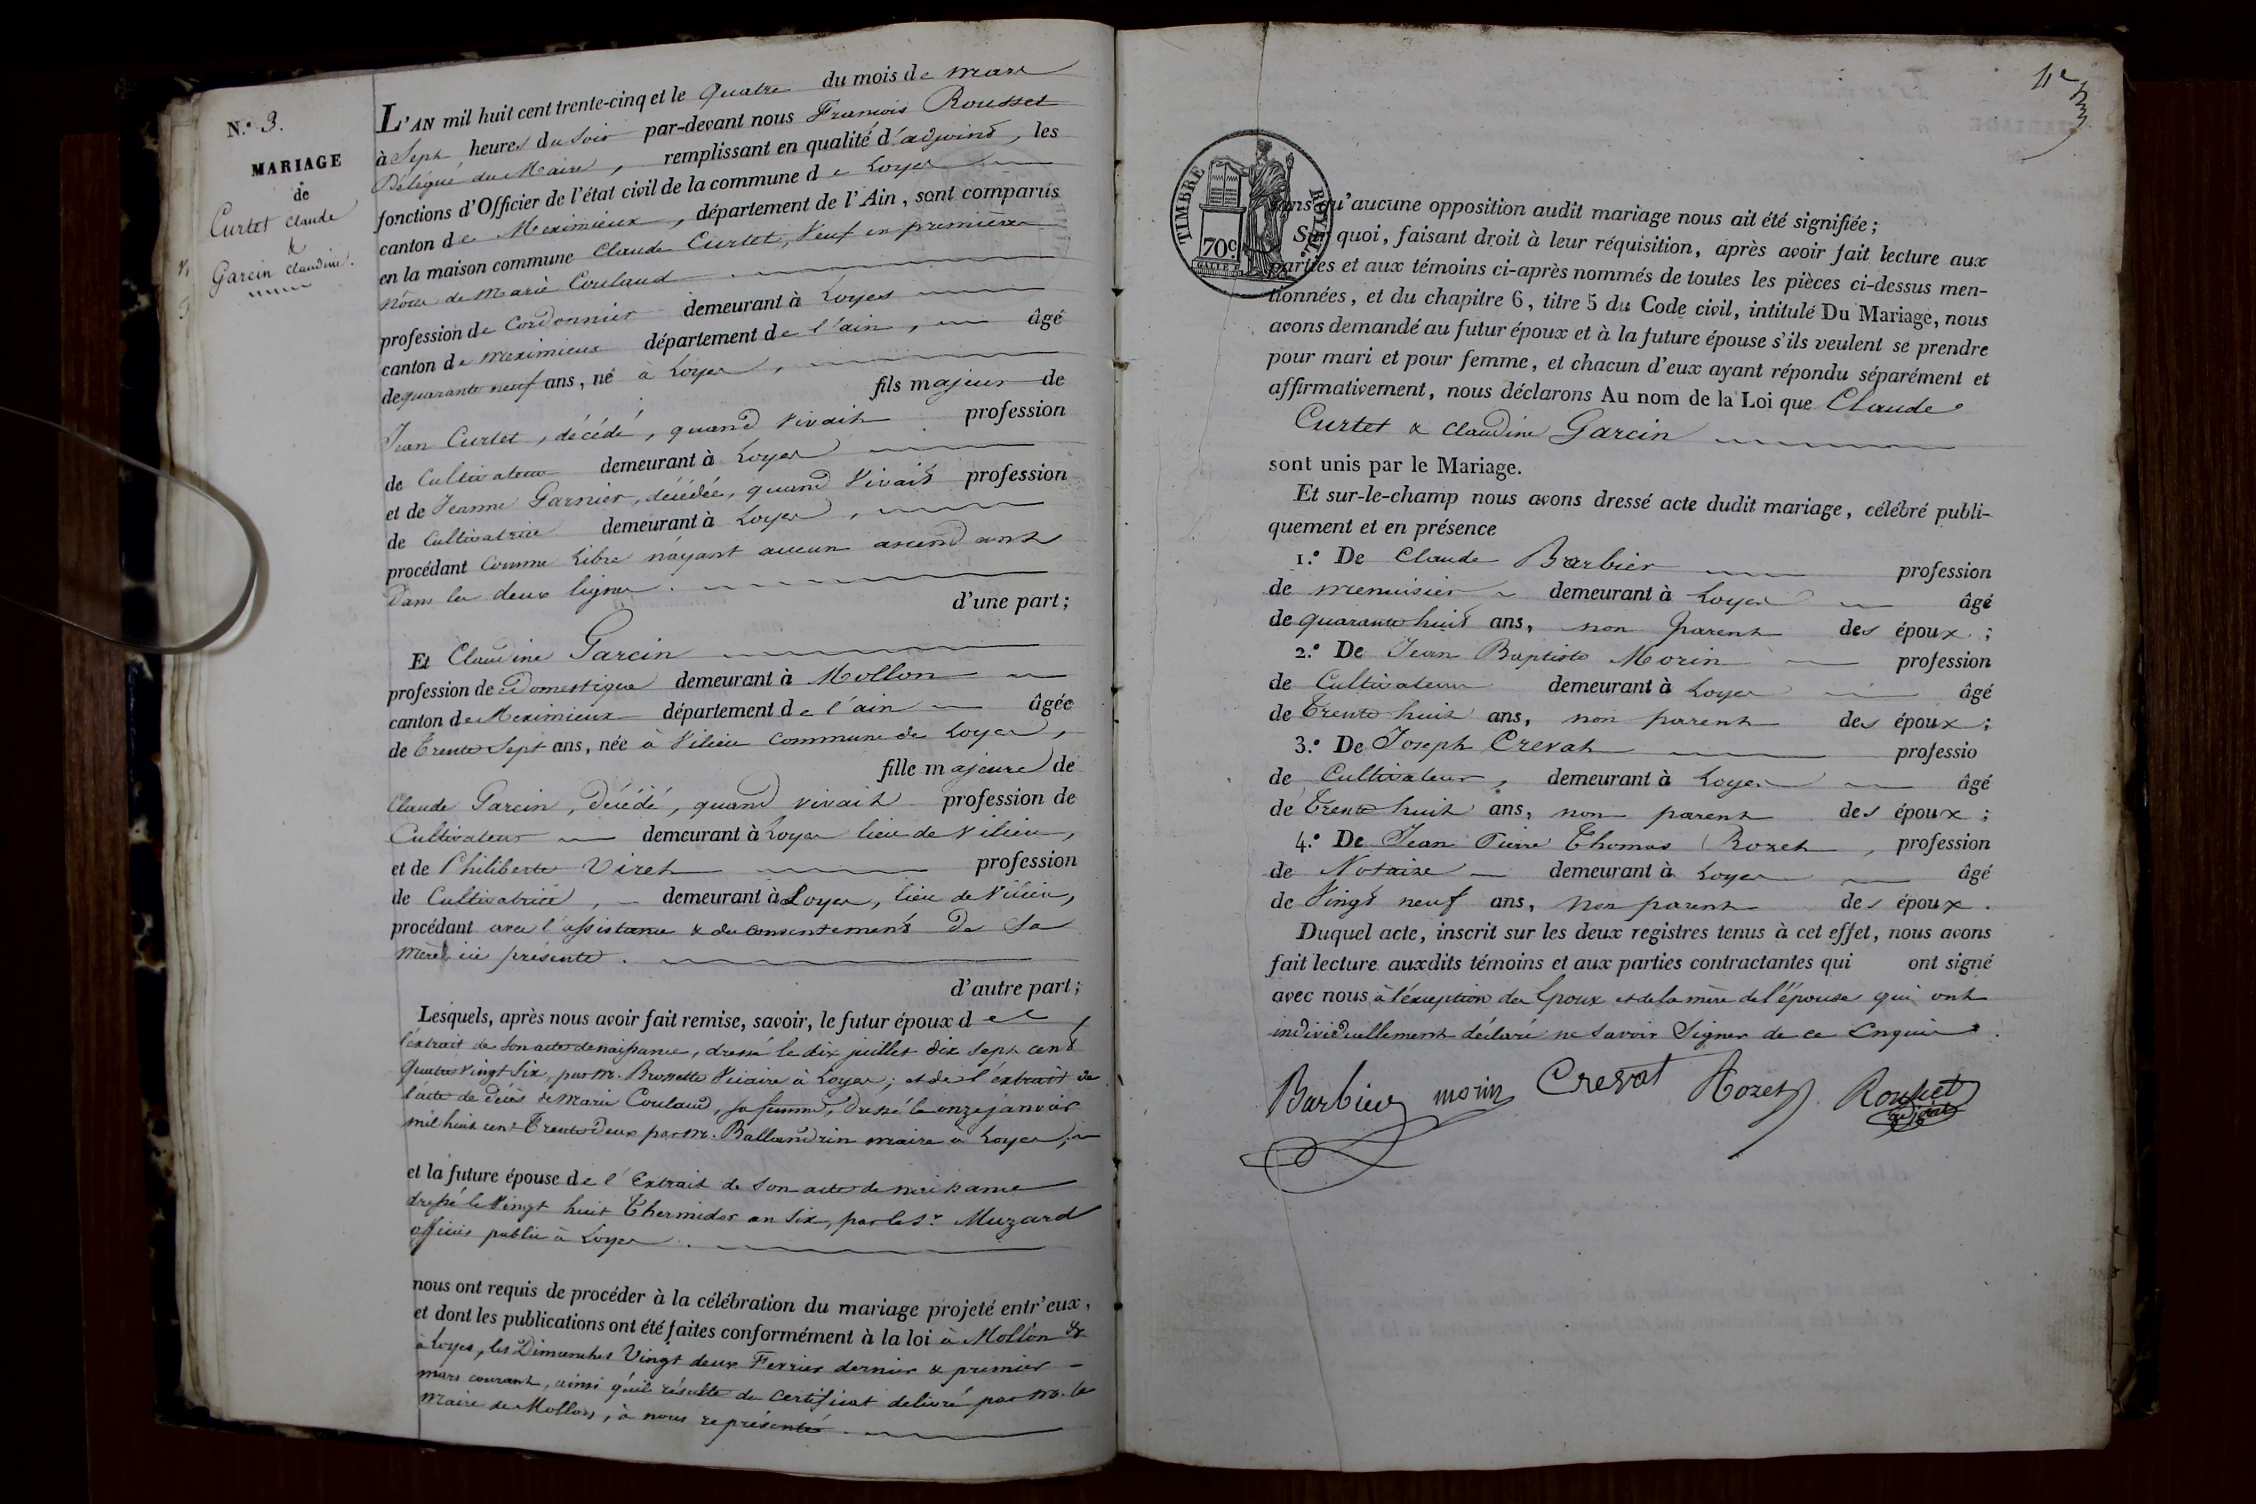 N.° 3.
MARIAGE
de
Curtet Claude
&
Garcin Claudine.
L'AN mil huit cent trente-cinq et le Quatre du mois de mars
à Sept heures du Soir par-devant nous François Rousset
Délégué du Maire, remplissant en qualité d'adjoint, les
fonctions d'Officier de l'état civil de la commune de Loyes
canton de Meximieux, département de l'Ain, sont comparus
en la maison commune Claude Curtet, Veuf en premières
nôces de Marie Coulaud
profession de Cordonnier demeurant à Loyes
canton de Meximieux département de l'ain, âgé
de quarante neuf ans, né à Loyes,
fils majeur de
Jean Curtet, décédé, quand vivait profession
de Cultivateur demeurant à Loyes
et de Jeanne Garnier, décédée, quand Vivait profession
de Cultivatrice demeurant à Loyes,
procédant Comme Libre n'ayant aucun ascendant
Dans les deux lignes.
d'une part;
Et Claudine Garcin
profession de Domestique demeurant à Mollon
canton de Meximieux département de l'ain âgée
de Trente Sept ans, née à Vilieu Commune de Loyes,
fille majeure de
Claude Garcin, Décédé, quand vivait profession de
Cultivateur demeurant à Loyes lieu de Vilieu,
et de Philiberte Viret profession
de Cultivatrice, demeurant à Loyes, lieu de Vilieu,
procédant avec l'assistance & du consentement De Sa
mère ici présente.
d'autre part;
Lesquels, après nous avoir fait remise, savoir, le futur époux de
l'extrait de Son acte de naissance, dressé le dix juillet dix sept cent
Quatre Vingt Six, par mr. Brossette Vicaire à Loyes; et de l'extrait de
l'acte de Décès de Marie Coulaud, sa femme, Dressé le onze janvier
mil huit cent Trente Deux par Mr. Ballandrin maire à Loyes;
et la future épouse de l'Extrait de Son acte de naissance
dressé le Vingt huit Thermidor an Six, par le Sr. Muzard
officier public à Loyes.
nous ont requis de procéder à la célébration du mariage projeté entr'eux,
et dont les publications ont été faites conformément à la loi à Mollon &
à Loyes, les Dimanches Vingt deux Fevrier dernier & premier
mars courant, ainsi qu'il résulte du certificat délivré par mr. le
Maire de Mollon, à nous représenté.
TIMBRE ROYAL
70c.
sans qu'aucune opposition audit mariage nous ait été signifiée;
Sur quoi, faisant droit à leur réquisition, après avoir fait lecture aux
parties et aux témoins ci-après nommés de toutes les pièces ci-dessus men-
tionnées, et du chapitre 6, titre 5 du Code civil, intitulé Du Mariage, nous
avons demandé au futur époux et à la future épouse s'ils veulent se prendre
pour mari et pour femme, et chacun d'eux ayant répondu séparément et
affirmativement, nous déclarons Au nom de la Loi que Claude
Curtet & Claudine Garcin
sont unis par le Mariage.
Et sur-le-champ nous avons dressé acte dudit mariage, célébré publi-
quement et en présence
1.° De Claude Barbier profession
de menuisier demeurant à Loyes âgé
de quarante huit ans, non parent des époux;
2.° De Jean Baptiste Morin profession
de Cultivateur demeurant à Loyes âgé
de Trente huit ans, non parent des époux;
3.° De Joseph Crevat professio
de Cultivateur, demeurant à Loyes âgé
de Trente huit ans, non parent des époux;
4.° De Jean Pierre Thomas Rozet, profession
de Notaire demeurant à Loyes âgé
de Vingt neuf ans, Non parent des époux.
Duquel acte, inscrit sur les deux registres tenus à cet effet, nous avons
fait lecture auxdits témoins et aux parties contractantes qui ont signé
avec nous à l'exception des Epoux et de la mère de l'épouse qui ont
individuellement déclaré ne Savoir Signer de ce Enquis.
Barbier morin Crevat Rozet Rousset
adjoint